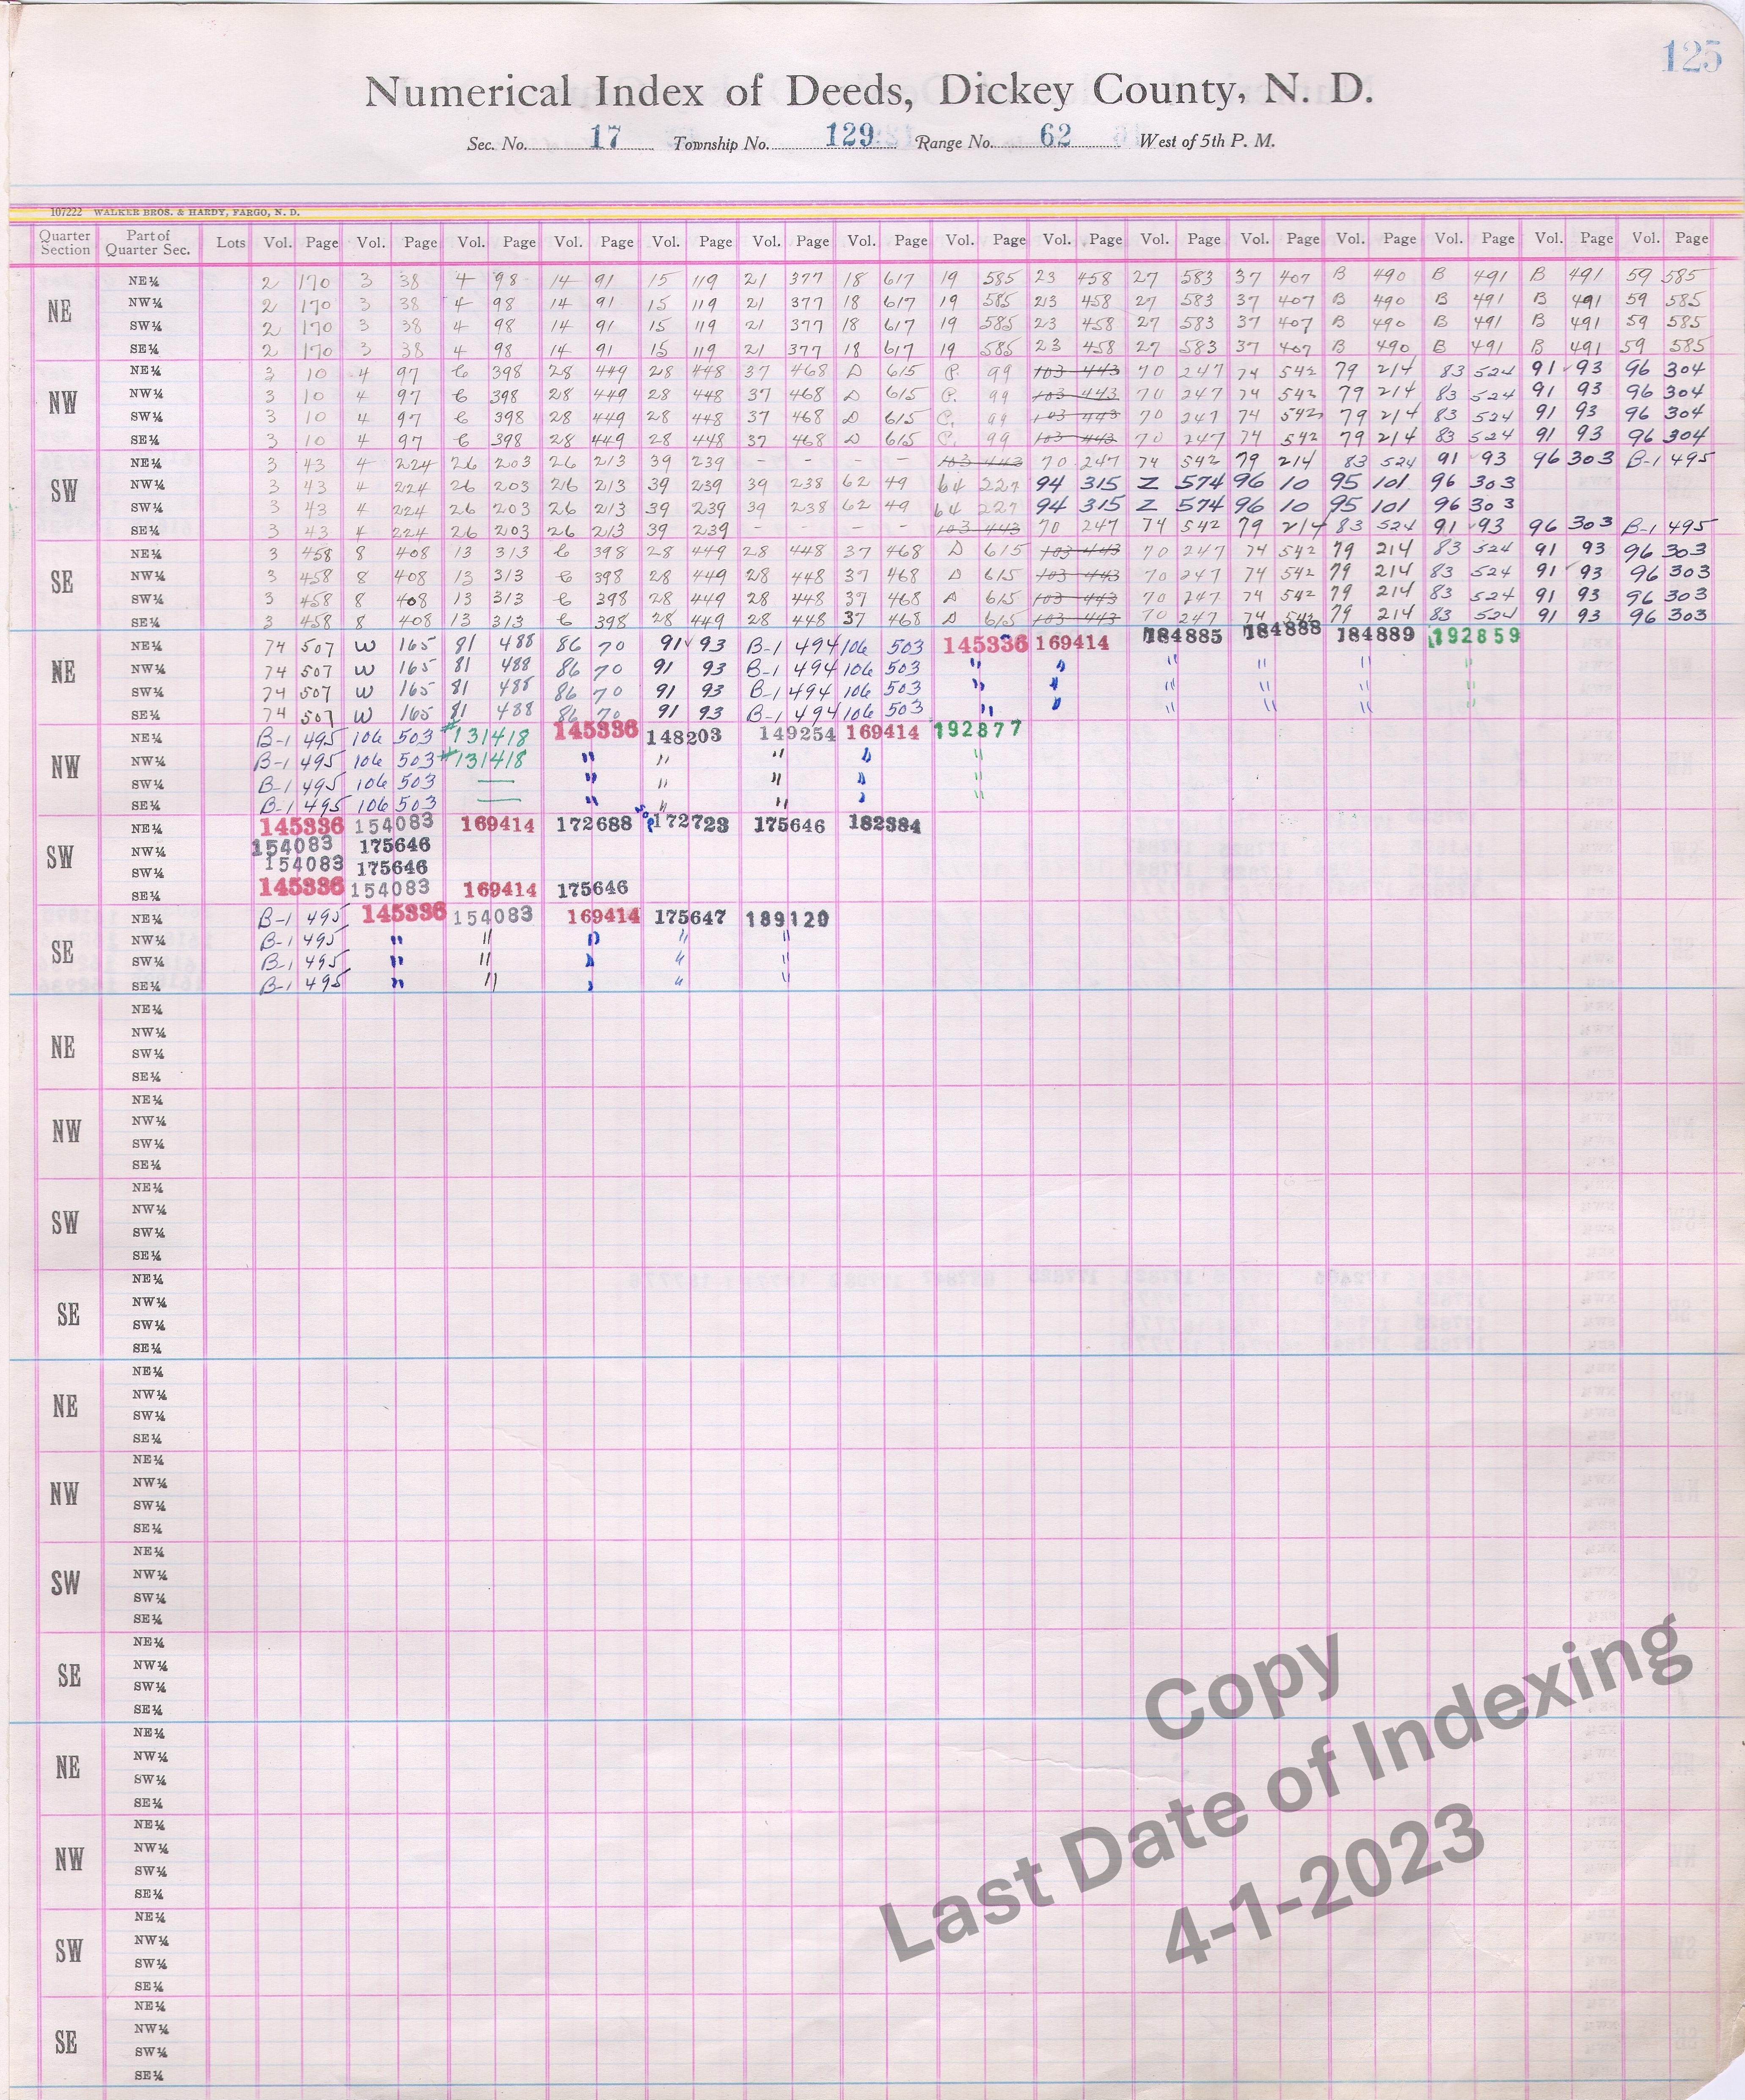 125
Numerical Index of Deeds, Dickey County, N. D.
Sec. No. 17 Township No. 129 Range No. 62 West of 5th P. M.
107222 WALKER BROS. & HARDY, FARGO, N. D.
Quarter Section Part of Quarter Sec. Lots Vol. Page Vol. Page Vol. Page Vol. Page Vol. Page Vol. Page Vol. Page Vol. Page Vol. Page Vol. Page Vol. Page Vol. Page Vol. Page Vol. Page Vol. Page
NE NE¼ 2 170 3 38 4 98 14 91 15 119 21 377 18 617 19 585 23 458 27 583 37 407 B 490 B 491 B 491 59 585
NW¼ 2 170 3 38 4 98 14 91 15 119 21 377 18 617 19 585 23 458 27 583 37 407 B 490 B 491 B 491 59 585
SW¼ 2 170 3 38 4 98 14 91 15 119 21 377 18 617 19 585 23 458 27 583 37 407 B 490 B 491 B 491 59 585
SE¼ 2 170 3 38 4 98 14 91 15 119 21 377 18 617 19 585 23 458 27 583 37 407 B 490 B 491 B 491 59 585
NW NE¼ 3 10 4 97 398 28 449 28 448 37 468 D 615 99 103 443 70 247 74 542 79 214 83 524 91 93 96 304
NW¼ 3 10 4 97 398 28 449 28 448 37 468 D 615 99 103 443 70 247 74 542 79 214 83 524 91 93 96 304
SW¼ 3 10 4 97 398 28 449 28 448 37 468 D 615 99 103 443 70 247 74 542 79 214 83 524 91 93 96 304
SE¼ 3 10 4 97 398 28 449 28 448 37 468 D 615 99 103 443 70 247 74 542 79 214 83 524 91 93 96 304
SW NE¼ 3 43 4 224 26 203 26 213 39 239 - - - - 103 443 70 247 74 542 79 214 83 524 91 93 96 303 B-1 495
NW¼ 3 43 4 224 26 203 26 213 39 239 39 238 62 49 64 227 94 315 Z 574 96 10 95 101 96 303
SW¼ 3 43 4 224 26 203 26 213 39 239 39 238 62 49 64 227 94 315 Z 574 96 10 95 101 96 303
SE¼ 3 43 4 224 26 203 26 213 39 239 - - - - 103 443 70 247 74 542 79 214 83 524 91 93 96 303 B-1 495
SE NE¼ 3 458 8 408 13 313 398 28 449 28 448 37 468 D 615 103 443 70 247 74 542 79 214 83 524 91 93 96 303
NW¼ 3 458 8 408 13 313 398 28 449 28 448 37 468 D 615 103 443 70 247 74 542 79 214 83 524 91 93 96 303
SW¼ 3 458 8 408 13 313 398 28 449 28 448 37 468 D 615 103 443 70 247 74 542 79 214 83 524 91 93 96 303
SE¼ 3 458 8 408 13 313 398 28 449 28 448 37 468 D 615 103 443 70 247 74 542 79 214 83 524 91 93 96 303
NE NE¼ 74 507 W 165 81 488 86 70 91 93 B-1 494 106 503 145336 169414 184885 184888 184889 192859
NW¼ 74 507 W 165 81 488 86 70 91 93 B-1 494 106 503 " " " " " "
SW¼ 74 507 W 165 81 488 86 70 91 93 B-1 494 106 503 " " " " " "
SE¼ 74 507 W 165 81 488 86 70 91 93 B-1 494 106 503 " " " " " "
NW NE¼ B-1 495 106 503 #131418 145336 148203 149254 169414 192877
NW¼ B-1 495 106 503 #131418 " " " " "
SW¼ B-1 495 106 503 — " " " " "
SE¼ B-1 495 106 503 — " " " " "
SW NE¼ 145336 154083 169414 172688 172723 175646 182384
NW¼ 154083 175646
SW¼ 154083 175646
SE¼ 145336 154083 169414 175646
SE NE¼ B-1 495 145336 154083 169414 175647 189120
NW¼ B-1 495 " " " " "
SW¼ B-1 495 " " " " "
SE¼ B-1 495 " " " " "
NE NE¼
NW¼
SW¼
SE¼
NW NE¼
NW¼
SW¼
SE¼
SW NE¼
NW¼
SW¼
SE¼
SE NE¼
NW¼
SW¼
SE¼
NE NE¼
NW¼
SW¼
SE¼
NW NE¼
NW¼
SW¼
SE¼
SW NE¼
NW¼
SW¼
SE¼
SE NE¼
NW¼
SW¼
SE¼
NE NE¼
NW¼
SW¼
SE¼
NW NE¼
NW¼
SW¼
SE¼
SW NE¼
NW¼
SW¼
SE¼
SE NE¼
NW¼
SW¼
SE¼
Copy
Last Date of Indexing
4-1-2023